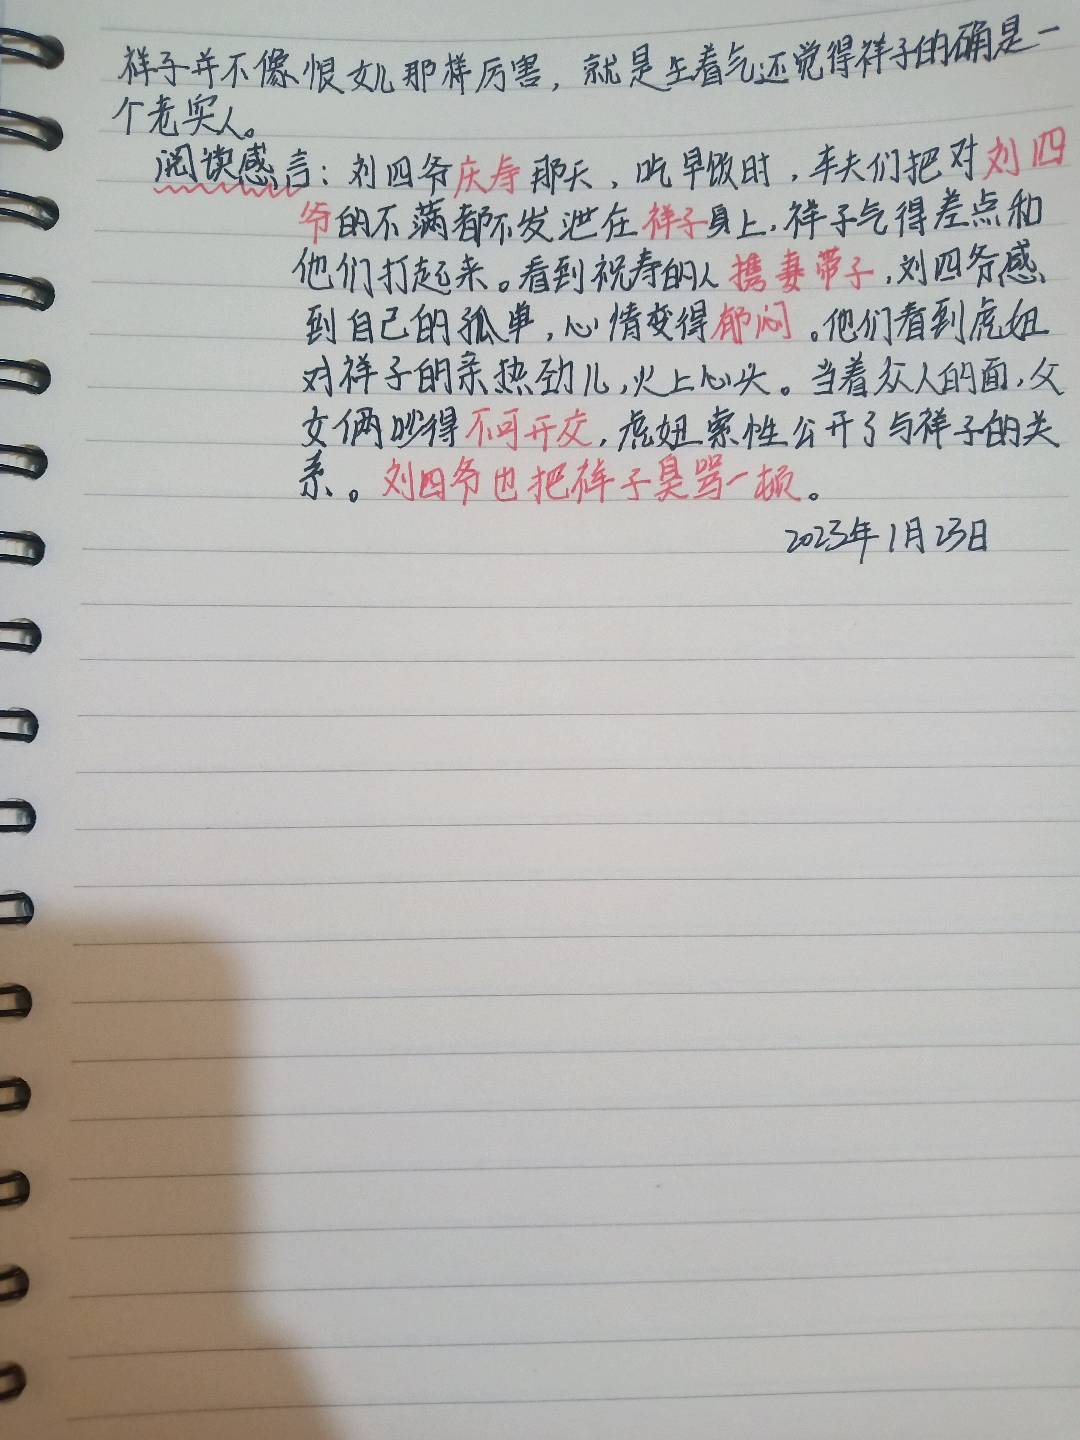 祥子并不像恨女儿那样厉害，就是生着气还觉得祥子的确是一
个老实人。
阅读感言：刘四爷庆寿那天，吃早饭时，车夫们把对刘四
爷的不满都不发泄在祥子身上，祥子气得差点和
他们打起来。看到祝寿的人携妻带子，刘四爷感
到自己的孤单，心情变得郁闷。他们看到虎妞
对祥子的亲热劲儿，火上心头。当着众人的面，父
女俩吵得不可开交，虎妞索性公开了与祥子的关
系。刘四爷也把祥子臭骂一顿。
2023年1月23日